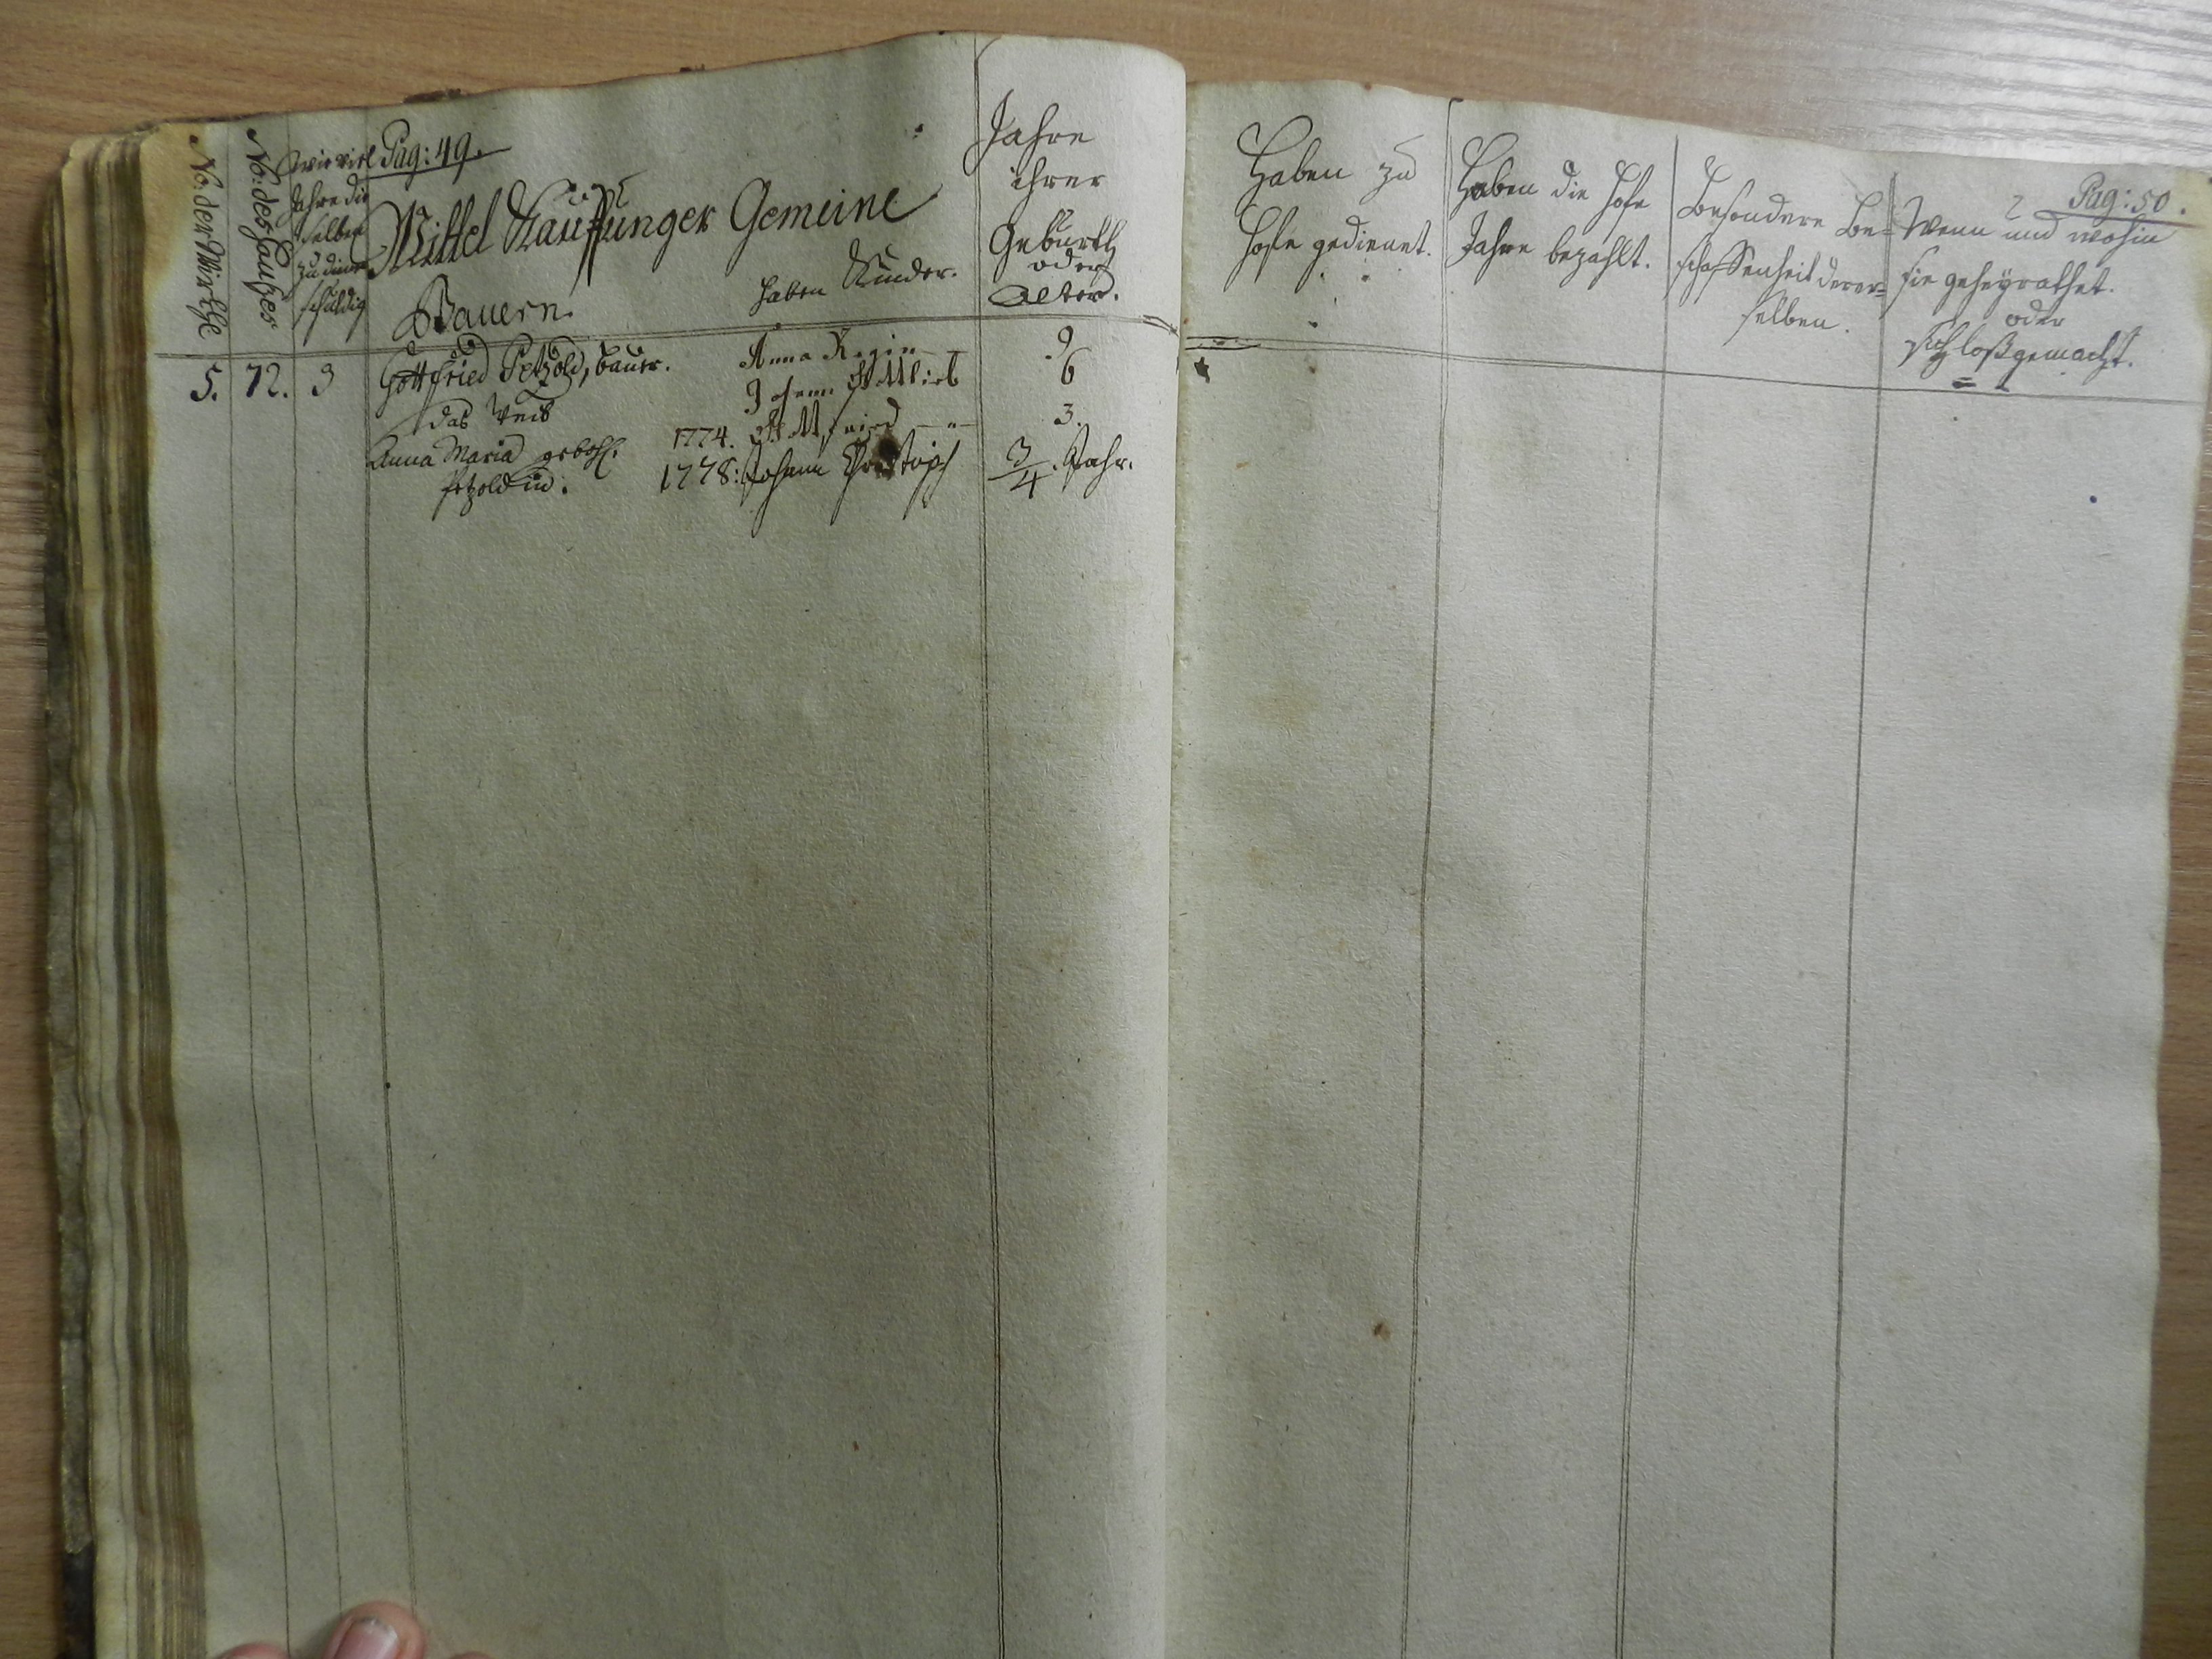 Pag: 49.
No. der Wirthe
No: des Hauses
wie viel
Jahre die
selben
zu dienen
schuldig
Mittel Kauffunger Gemeine
Bauern.
haben Kinder.
Jahre
ihrer
Geburth
oder
Alter.
5. 72. 3 Gottfried Petzold, bauer. Anna Regin — 9
das Weib Johann Gottlieb 6
Anna Maria gebohr. 1774. Gottfried — " — 3.
Petzoldin. 1778: Johann Christoph 3/4. Jahr.
Pag: 50.
Haben zu
Hofe gedienet.
Haben die Hofe
Jahre bezahlt.
Besondere Be=
schaffenheit derer=
selben.
Wenn und wohin
sie geheyrathet.
oder
sich loßgemacht.